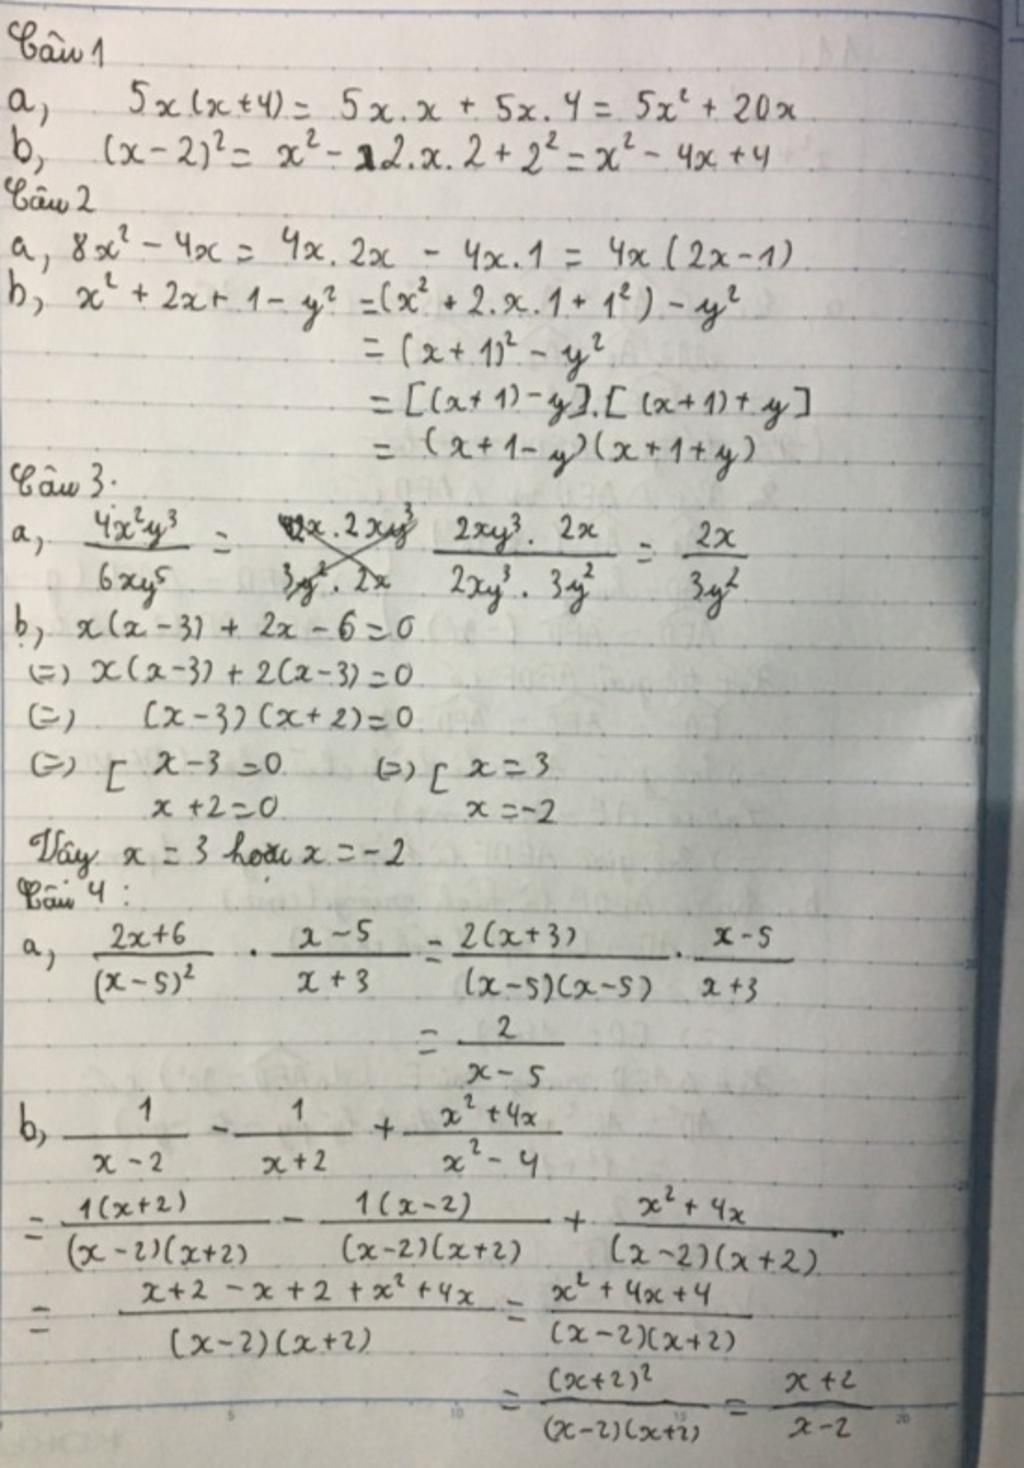 Câu 1
a, 5x(x+4) = 5x.x + 5x.4 = 5x² + 20x
b, (x-2)² = x² - 2.x.2 + 2² = x² - 4x + 4
Câu 2
a, 8x² - 4x = 4x.2x - 4x.1 = 4x(2x-1)
b, x² + 2x + 1 - y² = (x² + 2.x.1 + 1²) - y²
= (x+1)² - y²
= [(x+1)-y].[(x+1)+y]
= (x+1-y)(x+1+y)
Câu 3:
a, 4x²y³/6xy⁵ = 2xy³.2x/2xy³.3y² = 2x/3y²
b, x(x-3) + 2x - 6 = 0
(=) x(x-3) + 2(x-3) = 0
(=) (x-3)(x+2) = 0
(=) [ x-3 = 0 (=) [ x = 3
x+2 = 0 x = -2
Vậy x = 3 hoặc x = -2
Câu 4:
a, 2x+6/(x-5)² . x-5/x+3 = 2(x+3)/(x-5)(x-5) . x-5/x+3
= 2/x-5
b, 1/x-2 - 1/x+2 + x²+4x/x²-4
= 1(x+2)/(x-2)(x+2) - 1(x-2)/(x-2)(x+2) + x²+4x/(x-2)(x+2)
= x+2-x+2+x²+4x/(x-2)(x+2) = x²+4x+4/(x-2)(x+2)
= (x+2)²/(x-2)(x+2) = x+2/x-2